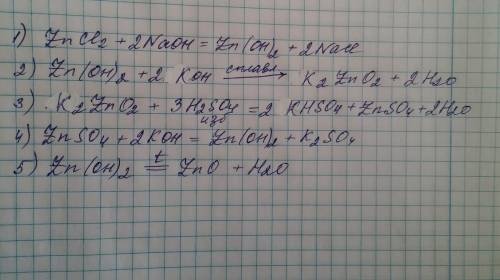 1) ZnCl2 + 2NaOH = Zn(OH)2 + 2NaCl
2) Zn(OH)2 + 2 KOH сплавл→ K2ZnO2 + 2H2O
3) K2ZnO2 + 3H2SO4 изб = 2 KHSO4 + ZnSO4 + 2H2O
4) ZnSO4 + 2KOH = Zn(OH)2 + K2SO4
5) Zn(OH)2 t= ZnO + H2O